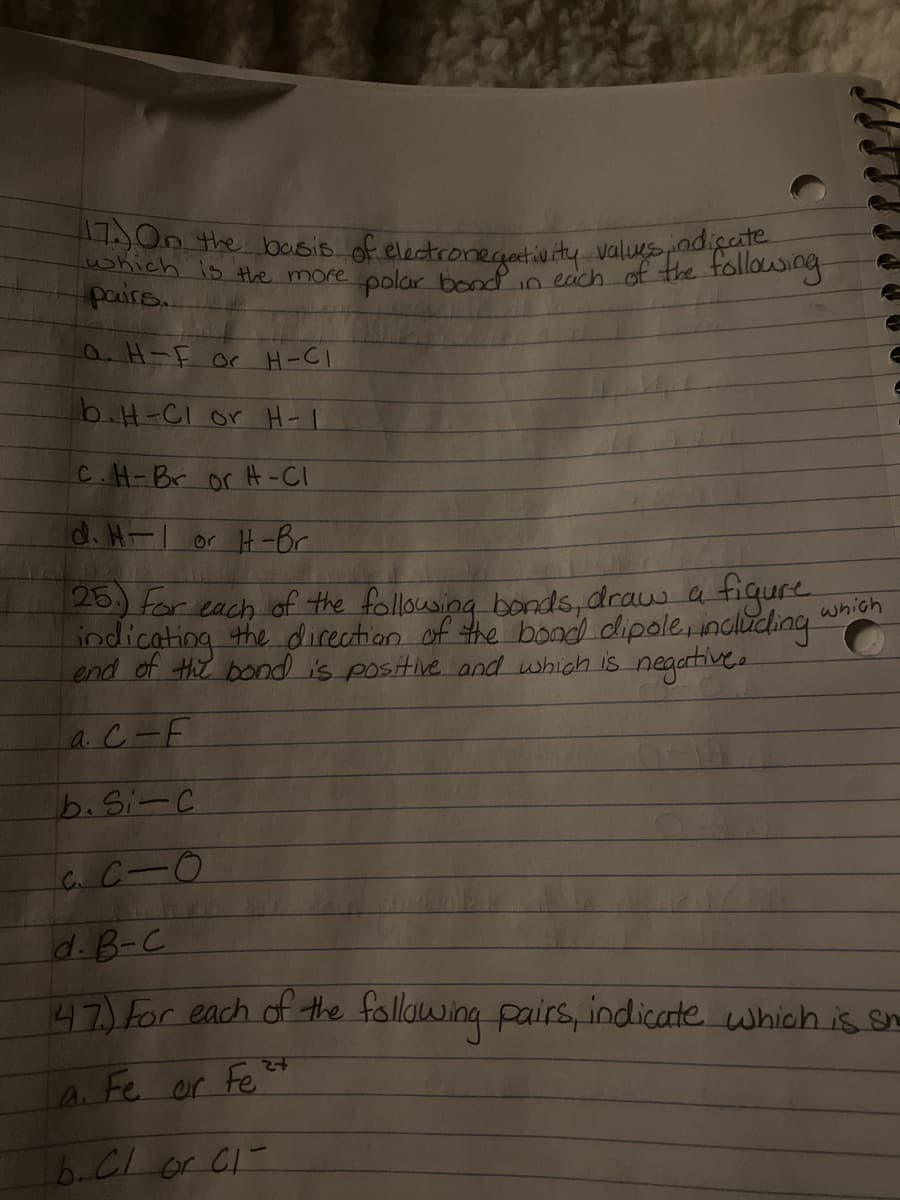 17.) On the basis of electronegativity values, indicate
which is the more polar bond in each of the following
pairs.
a. H-F or H-Cl
b. H-Cl or H-I
C. H-Br or H-Cl
d. H-I or H-Br
25.) For each of the following bonds, draw a figure
indicating the direction of the bond dipole, including which
end of the bond is positive and which is negative.
a. C-F
b. Si-C
c. C-O
d. B-C
47.) For each of the following pairs, indicate which is sm
a. Fe or Fe²⁺
b. Cl or Cl⁻